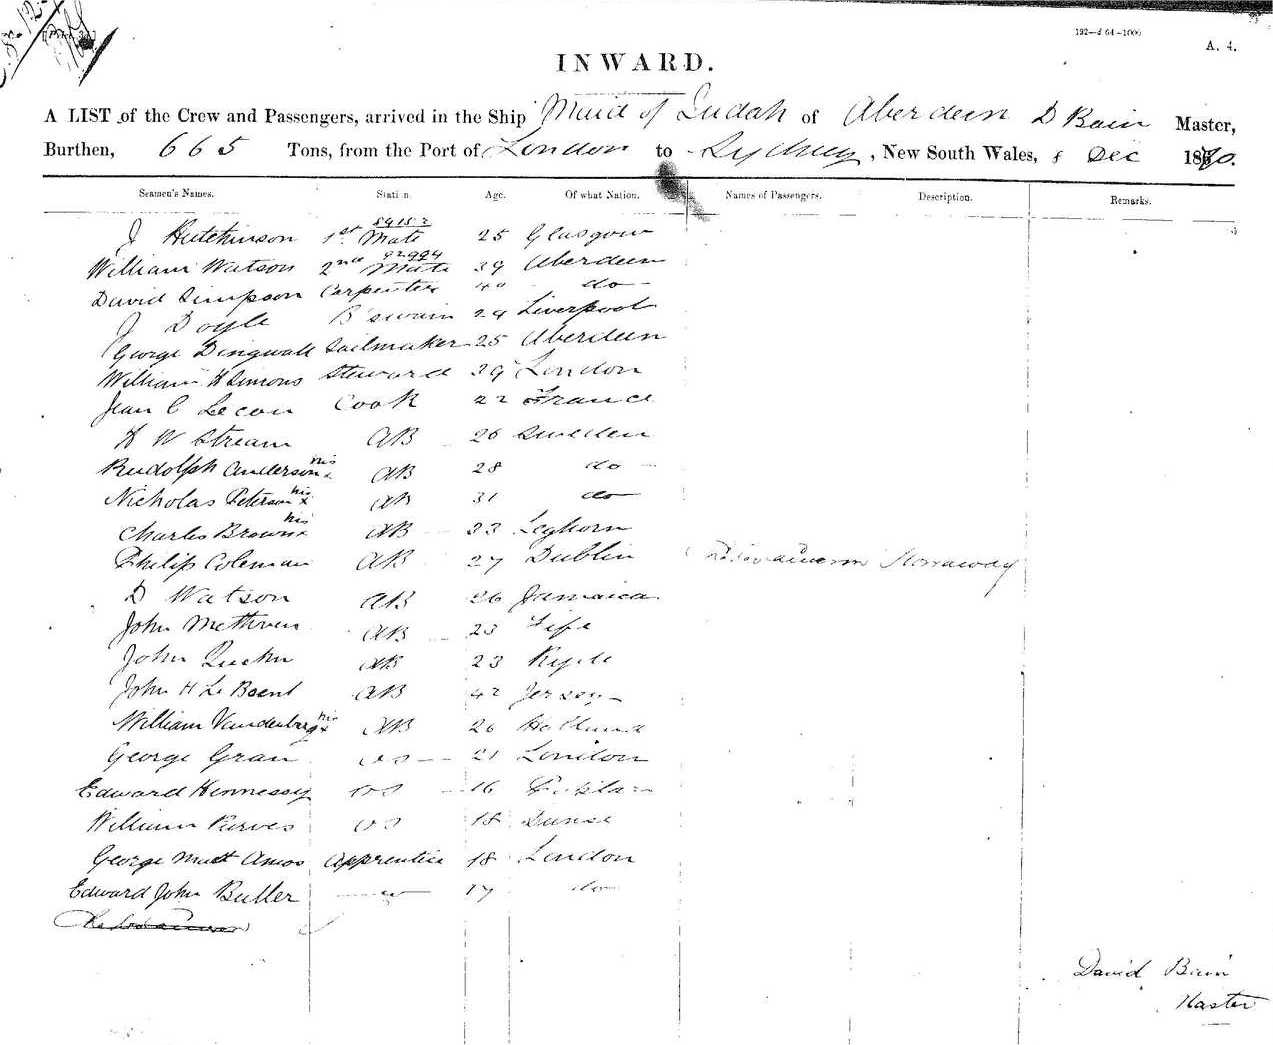 192—d 64—1000
A. 4.
INWARD.
A LIST of the Crew and Passengers, arrived in the Ship Maid of Judah of Aberdeen D Bain Master,
Burthen, 665 Tons, from the Port of London to Sydney, New South Wales, 8 Dec 1870.
Seamen's Names. Station. Age. Of what Nation. Names of Passengers. Description. Remarks.
J Hutchinson 1st Mate 25 Glasgow
William Watson 2nd 92994 Mate 39 Aberdeen
David Simpson Carpenter 40 do
J Doyle B'swain 24 Liverpool
George Dingwall Sailmaker 25 Aberdeen
William H Simons Steward 39 London
Jean C Lecou Cook 22 France
H W Stream AB 26 Sweden
Rudolph Anderson his x AB 28 do
Nicholas Peterson his x AB 31 do
Charles Brown his x AB 33 Leghorn
Philip Coleman AB 27 Dublin Stowaway
D Watson AB 26 Jamaica
John Methven AB 23 Fife
John AB 23 Ryde
John H Le AB 42 Jersey
William Vandenburg his x AB 26 Holland
George Gran OS 21 London
Edward Hennessy OS 16
William Purves OS 18 Dunse
George Matt Amos Apprentice 18 London
Edward John Butler 17 do
David Bain
Master